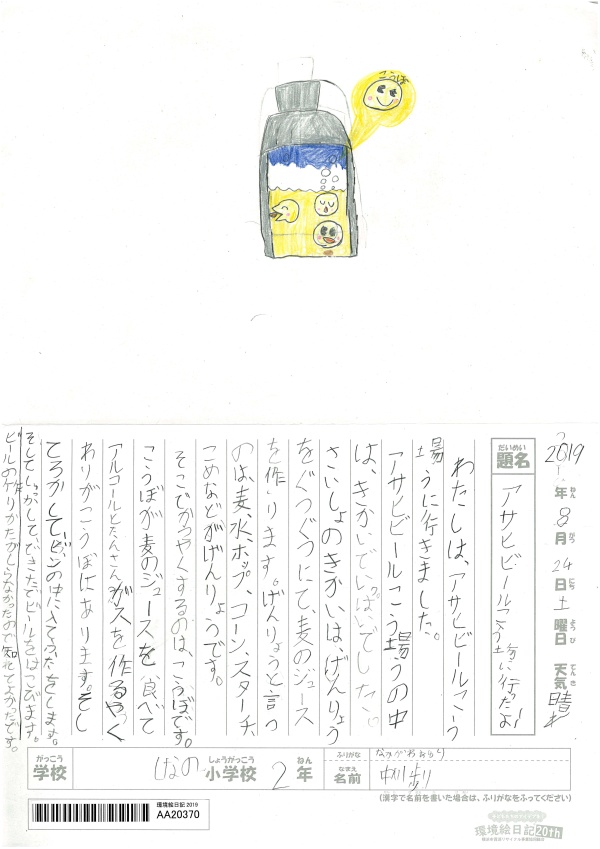 こうぼ
2019年8月24日土曜日 天気晴れ
題名 アサヒビールこう場に行ったよ!
わたしは、アサヒビールこう
場うに行きました。
アサヒビールこう場うの中
は、きかいでいっぱいでした。
さいしょのきかいは、げんりょう
をぐつぐつにて、麦のジュース
を作ります。げんりょうと言っ
のは、麦、水、ホップ、コーン、スターチ、
こめなどがげんりょうです。
そこでかつやくするのは、こうぼです。
こうぼが麦のジュースを食べて
アルコールとたんさんガスを作るやく
わりがこうぼにあります。そし
てろかしてビンの中に入れてふたをします。
そして、できたてビールをはこびます。
ビールの作りかたがしらなかったので知れてよかったです。
がっこう
学校
しょうがっこう
小学校 2年
ふりがな
なまえ
名前
(漢字で名前を書いた場合は、ふりがなをふってください)
環境絵日記2019
AA20370
環境絵日記20th